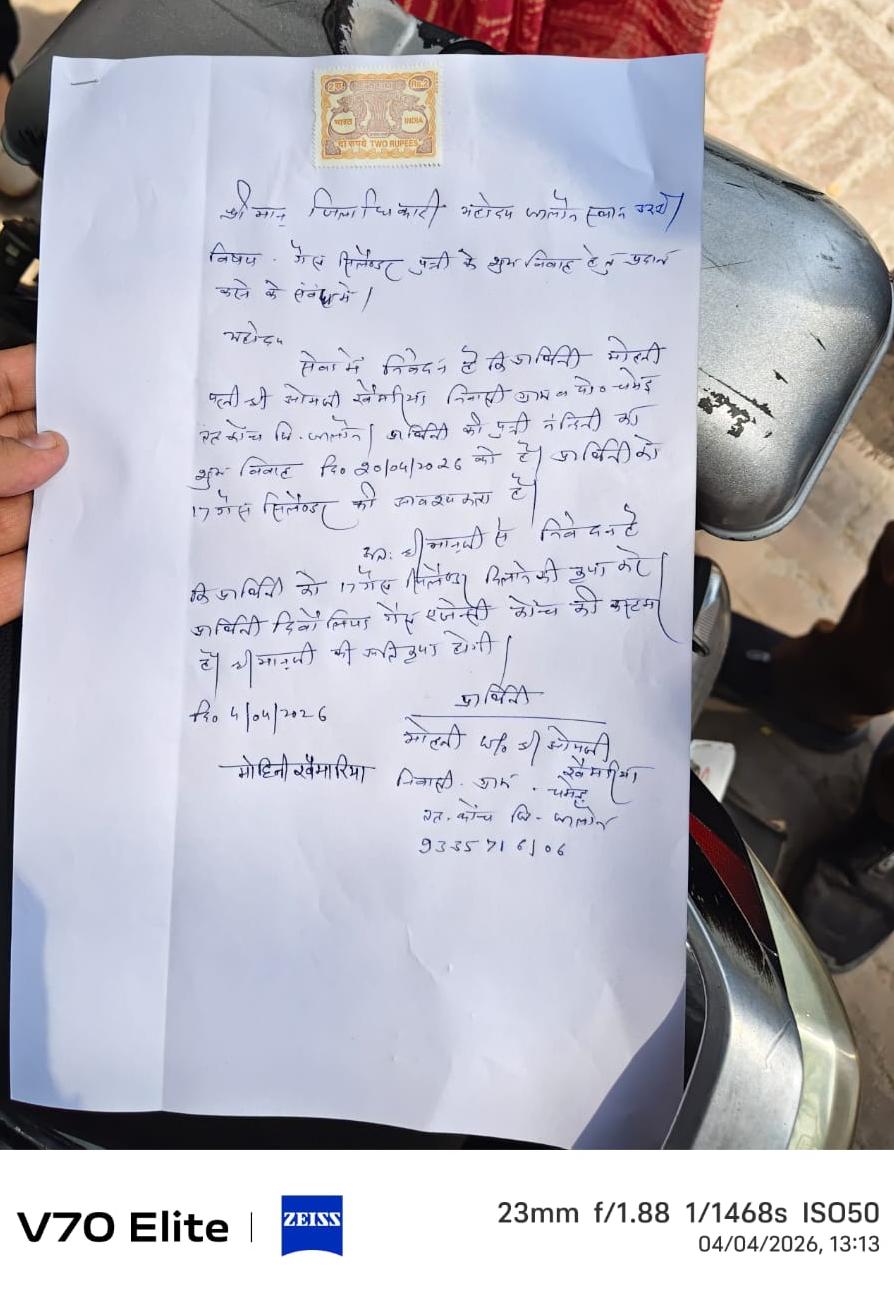 2रु. Rs.2
भारत INDIA
दो रुपये TWO RUPEES
श्री मान् जिलाधिकारी महोदय जालौन स्थान उरई।
विषय - गैस सिलेण्डर पुत्री के शुभ विवाह हेतु प्रदान
करने के संबंध में।
महोदय
सेवा में निवेदन है कि प्रार्थिनी मोहनी
पत्नी श्री ओमजी खैमरिया निवासी ग्राम व पो० चमेड़
कोंच जि. जालौन। प्रार्थिनी की पुत्री नंदिनी का
शुभ विवाह दि० 20/04/2026 को है। प्रार्थिनी को
17 गैस सिलेण्डर की आवश्यकता है।
अतः श्रीमान् जी से निवेदन है
कि प्रार्थिनी को 17 गैस सिलेण्डर दिलाने की कृपा करें।
प्रार्थिनी गैस एजेन्सी कोंच की
है। श्रीमान् जी की अति कृपा होगी।
दि० 4/04/2026
प्रार्थिनी
मोहनी W/o श्री ओमजी
खैमरिया
मोहिनी खैमरिया
निवासी - ग्राम - चमेड़
कोंच जि - जालौन
9335716106
V70 Elite | ZEISS
23mm f/1.88 1/1468s ISO50
04/04/2026, 13:13